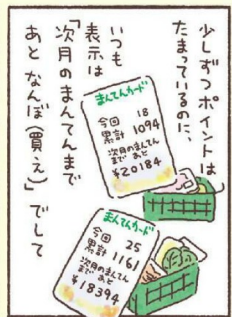 少しずつポイントは
たまっているのに、
いつも
表示は
「次月のまんてんまで
あと なんぼ(買え)」でして
まんてんカード
今回 18
累計 1094
次月のまんてん
まで あと
¥20184
まんてんカード
今回 25
累計 1161
次月のまんてん
まで あと
¥18394